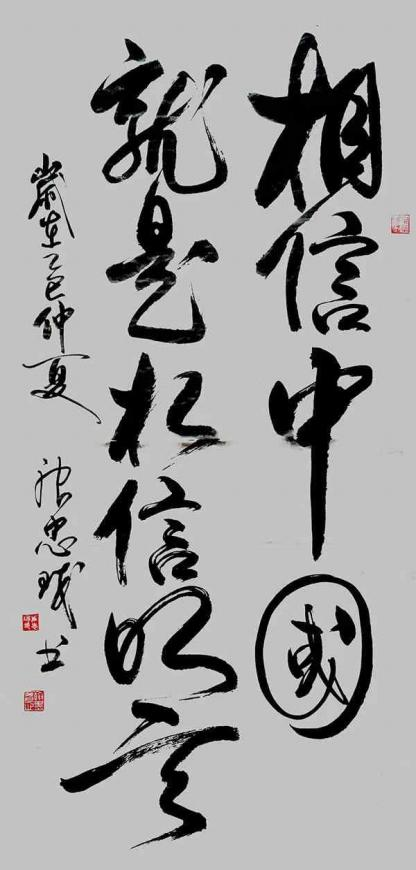 相信中國
就是相信明天
歲在乙巳仲夏 張忠 书